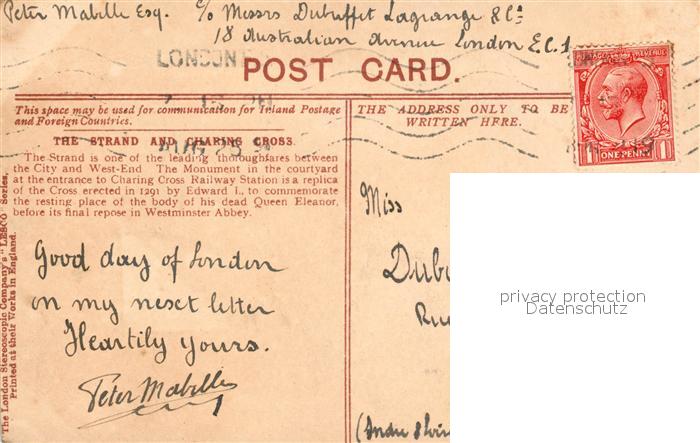 Peter Mabille Esq. c/o Messrs Dubuffet Lagrange & Co
18 Australian Avenue London E.C.1
LONDON
POST CARD.
POSTAGE REVENUE
1 ONE PENNY 1
This space may be used for communication for Inland Postage
and Foreign Countries.
THE STRAND AND CHARING CROSS.
The Strand is one of the leading thoroughfares between
the City and West-End. The Monument in the courtyard
at the entrance to Charing Cross Railway Station is a replica
of the Cross erected in 1291 by Edward I., to commemorate
the resting place of the body of his dead Queen Eleanor,
before its final repose in Westminster Abbey.
THE ADDRESS ONLY TO BE
WRITTEN HERE.
Good day of London
on my next letter
Heartily yours.
Peter Mabille
Miss
(Indre & Loire
The London Stereoscopic Company's "LESCO" Series.
Printed at their Works in England.
privacy protection
Datenschutz